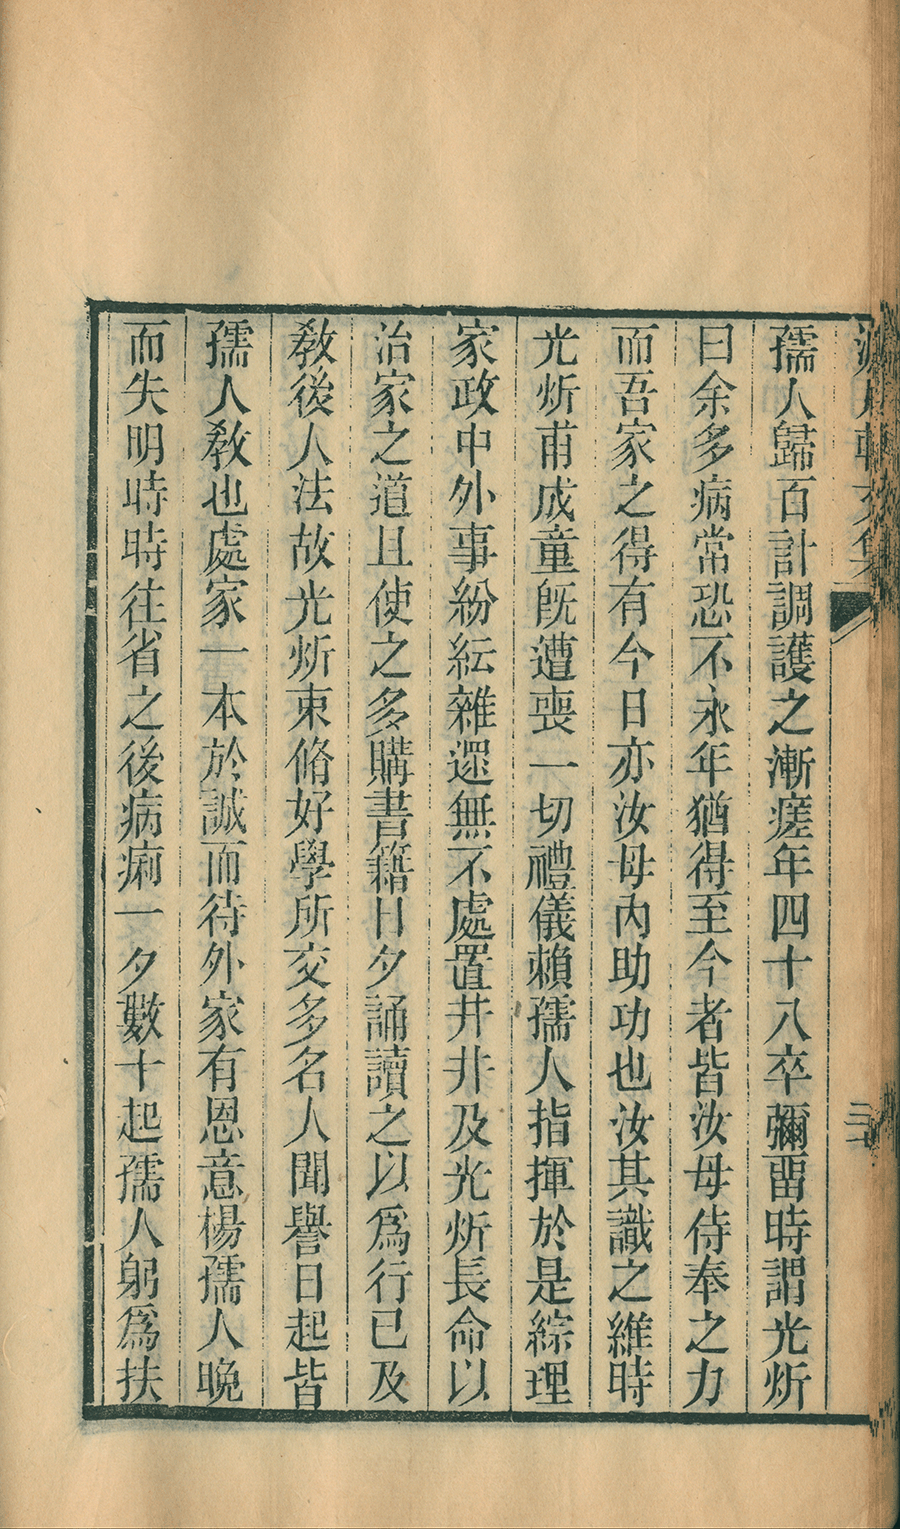 孺人歸百計調護之漸瘥年四十八卒彌畱時謂光炘
曰余多病常恐不永年猶得至今者皆汝母侍奉之力
而吾家之得有今日亦汝母內助功也汝其識之維時
光炘甫成童旣遭喪一切禮儀賴孺人指揮於是綜理
家政中外事紛紜雜遝無不處置井井及光炘長命以
治家之道且使之多購書籍日夕誦讀之以爲行已及
敎後人法故光炘束脩好學所交多名人聞譽日起皆
孺人敎也處家一本於誠而待外家有恩意楊孺人晚
而失明時時往省之後病痢一夕數十起孺人躬爲扶